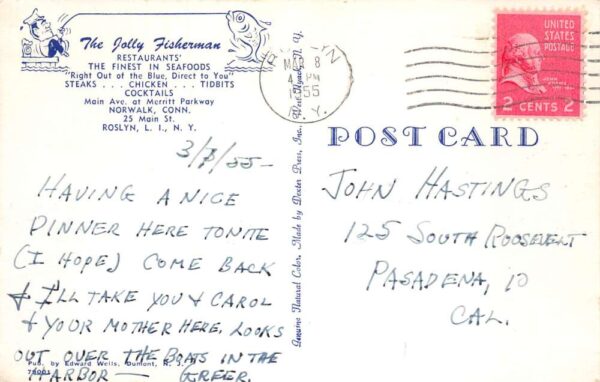 The Jolly Fisherman
RESTAURANTS'
THE FINEST IN SEAFOODS
"Right Out of the Blue, Direct to You"
STEAKS . . . CHICKEN . . . TIDBITS
COCKTAILS
Main Ave. at Merritt Parkway
NORWALK, CONN.
25 Main St.
ROSLYN, L. I., N. Y.
3/8/55-
HAVING A NICE
DINNER HERE TONITE
(I HOPE) COME BACK
& I'LL TAKE YOU & CAROL
& YOUR MOTHER HERE, LOOKS
OUT OVER THE BOATS IN THE
HARBOR — GREER.
Pub. by Edward Wells, Dumont, N. J.
78001
Genuine Natural Color, Made by Dexter Press, Inc., West Nyack, N. Y.
ROSLYN
MAR 8
4 PM
1955
N.Y.
UNITED
STATES
POSTAGE
JOHN ADAMS
2 CENTS 2
POST CARD
JOHN HASTINGS
125 SOUTH ROOSEVELT
PASADENA, 10
CAL.